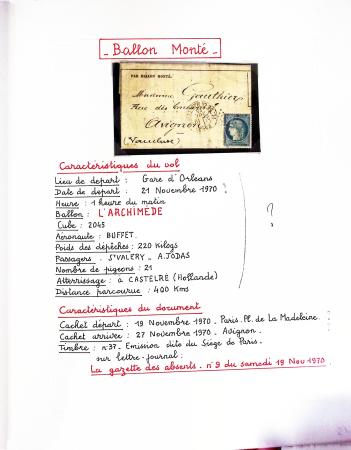 - Ballon Monté -
PAR BALLON MONTÉ.
Madame Gauthier
Rue des
Avignon
(Vaucluse)
Caractéristiques du vol
Lieu de départ : Gare d'Orleans
Date de départ : 21 Novembre 1970
Heure : 1 heure du matin
Ballon : L'ARCHIMEDE
?
Cube : 2045
Aéronaute : BUFFET.
Poids des dépêches : 220 Kilogs
Passagers . St VALERY . A. JODAS
Nombre de pigeons : 21
Atterrissage : à CASTELRE (Hollande)
Distance parcourue : 400 Kms
Caractéristiques du document
Cachet départ : 19 Novembre 1970 . Paris. Pl. de La Madeleine.
Cachet arrivée : 27 Novembre 1970 . Avignon.
Timbre : n°37. Emission dite du Siège de Paris.
sur lettre-journal :
La gazette des absents. n°9 du samedi 19 Nov 1970